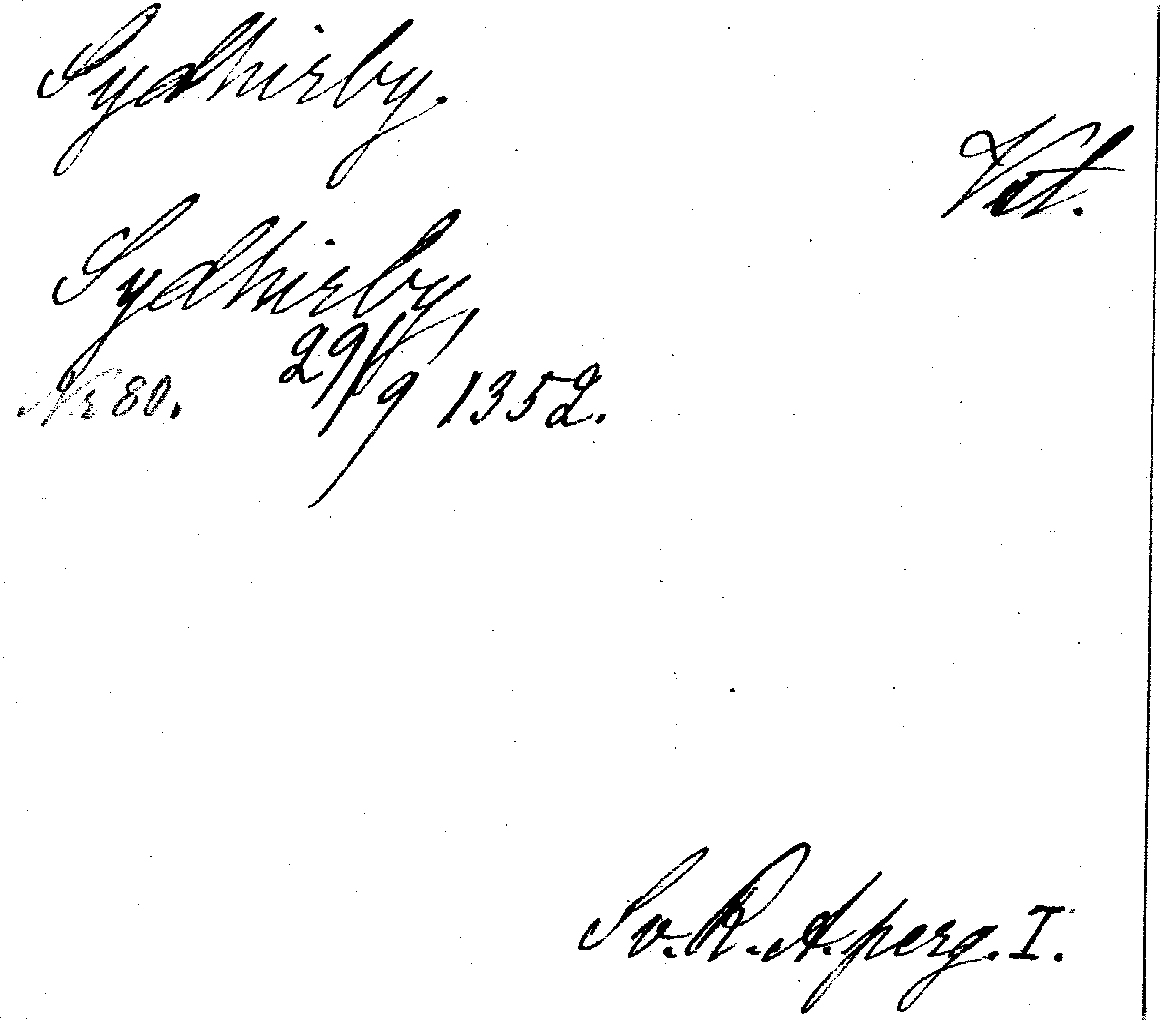 Sydhirby.
Vst.
Sydhirby,
Nr 80. 29/9 1352.
Sv. R. A. perg. I.